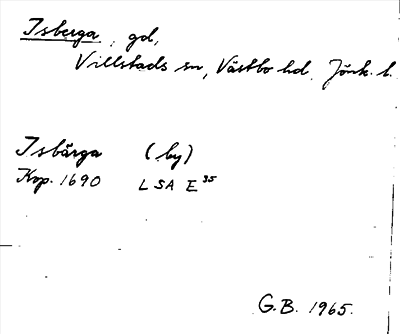 Isberga, gd,
Villstads sn, Västbo hd. Jönk. l.
Isbärga (by)
Kop. 1690 LSA E 35
G.B. 1965.